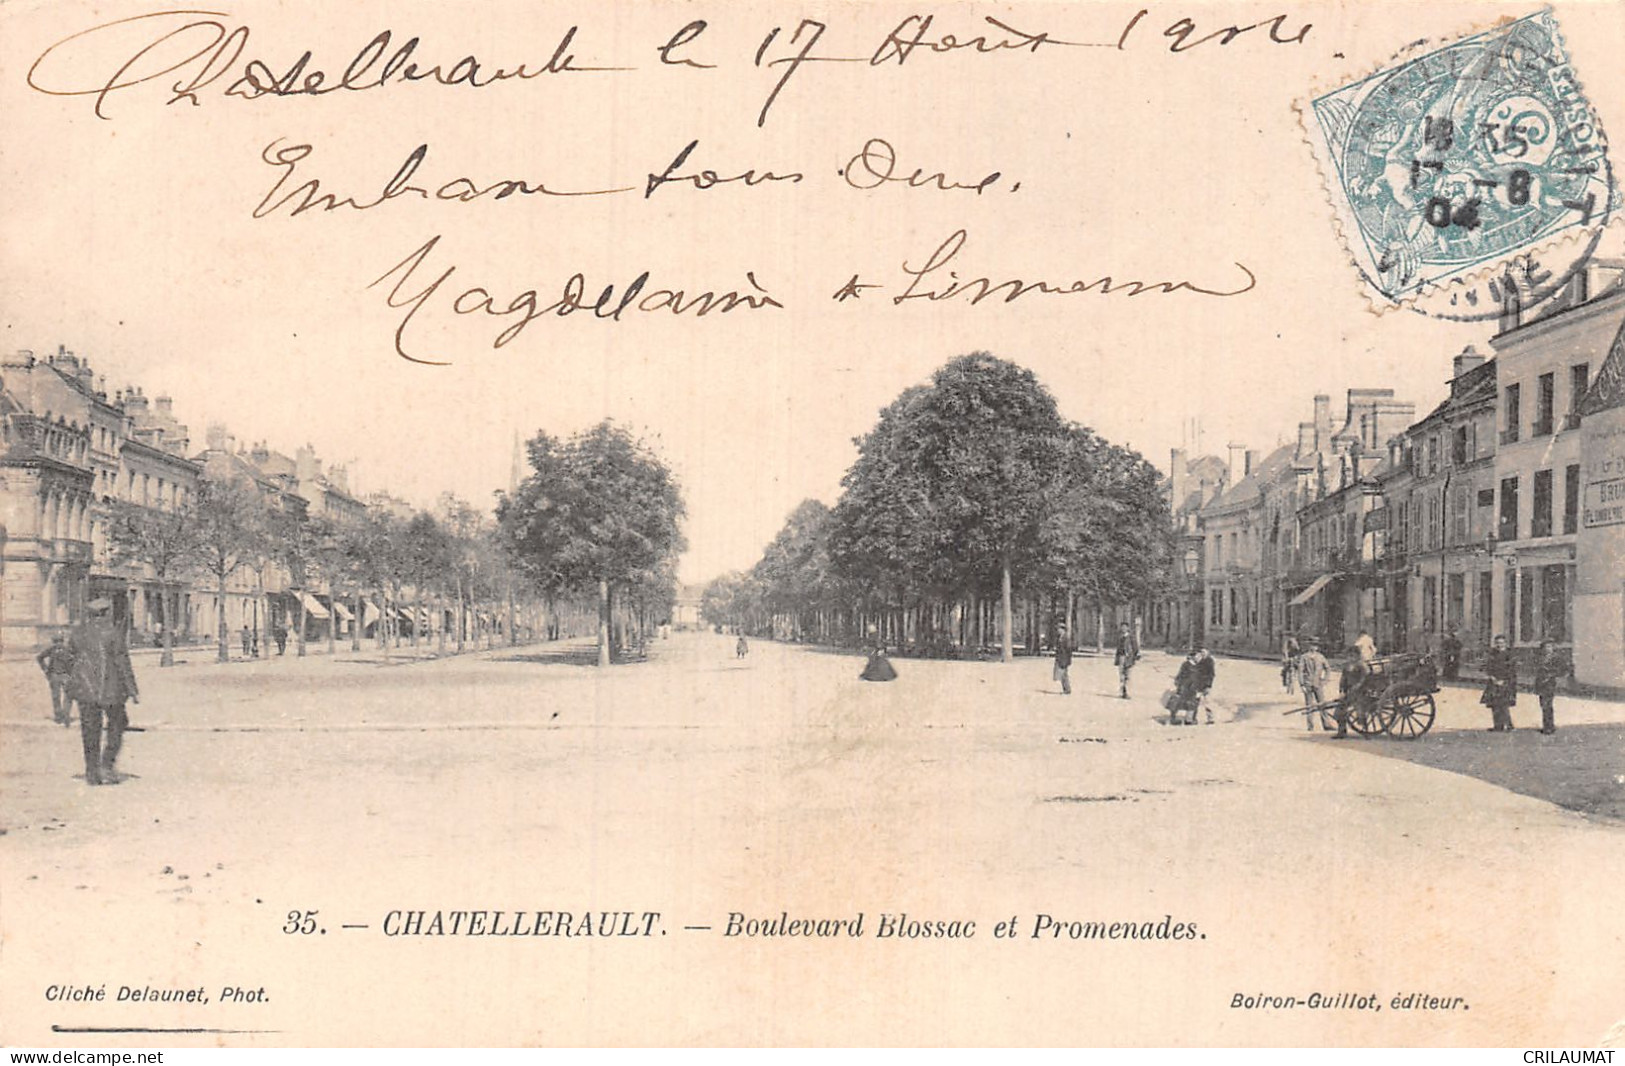 Chatellerault le 17 Août 1904.
Embrasse tous
Magdelaine
15
8
04
35. — CHATELLERAULT. — Boulevard Blossac et Promenades.
Cliché Delaunet, Phot.
Boiron-Guillot, éditeur.
www.delcampe.net
CRILAUMAT